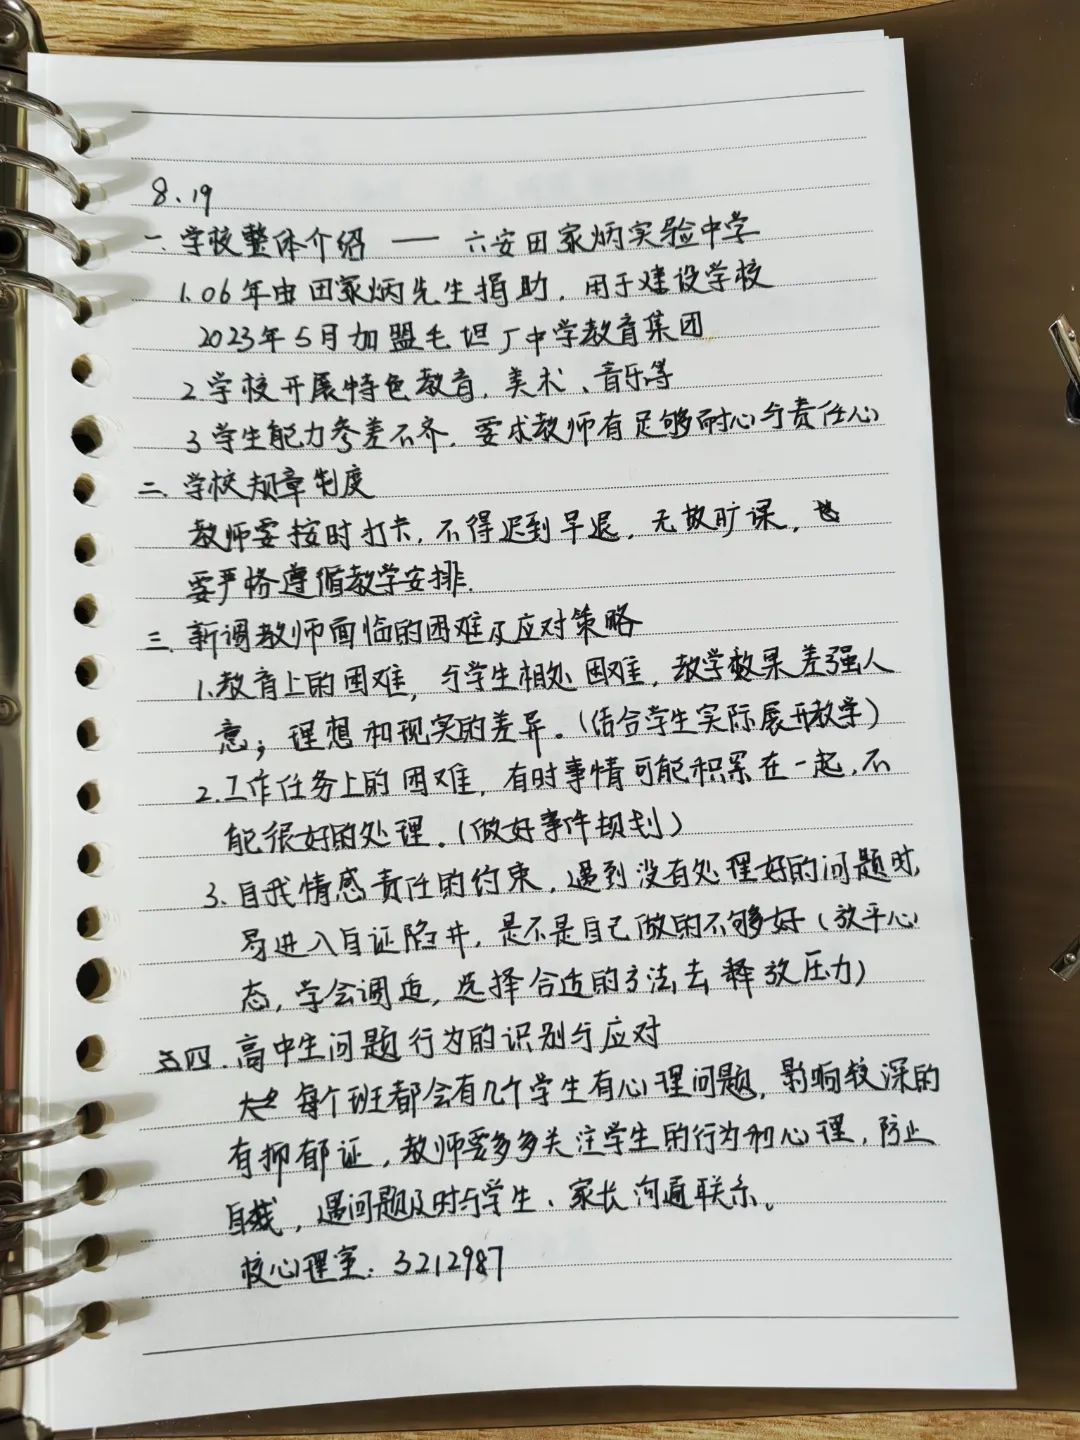 8、19
一、学校整体介绍 —— 六安田家炳实验中学
1.06年由田家炳先生捐助，用于建设学校
2023年5月加盟毛坦厂中学教育集团
2.学校开展特色教育，美术、音乐等
3.学生能力参差不齐，要求教师有足够耐心与责任心
二、学校规章制度
教师要按时打卡，不得迟到早退，无故旷课，
要严格遵循教学安排.
三、新调教师面临的困难及应对策略
1.教育上的困难，与学生相处困难，教学效果差强人
意；理想和现实的差异。（结合学生实际展开教学）
2.工作任务上的困难，有时事情可能积累在一起，不
能很好的处理。（做好事件规划）
3.自我情感责任的约束，遇到没有处理好的问题时，
易进入自证陷井，是不是自己做的不够好（放平心
态，学会调适，选择合适的方法去释放压力）
四.高中生问题行为的识别与应对
每个班都会有几个学生有心理问题，影响较深的
有抑郁证，教师要多多关注学生的行为和心理，防止
自残，遇问题及时与学生、家长沟通联系。
校心理室：3212987